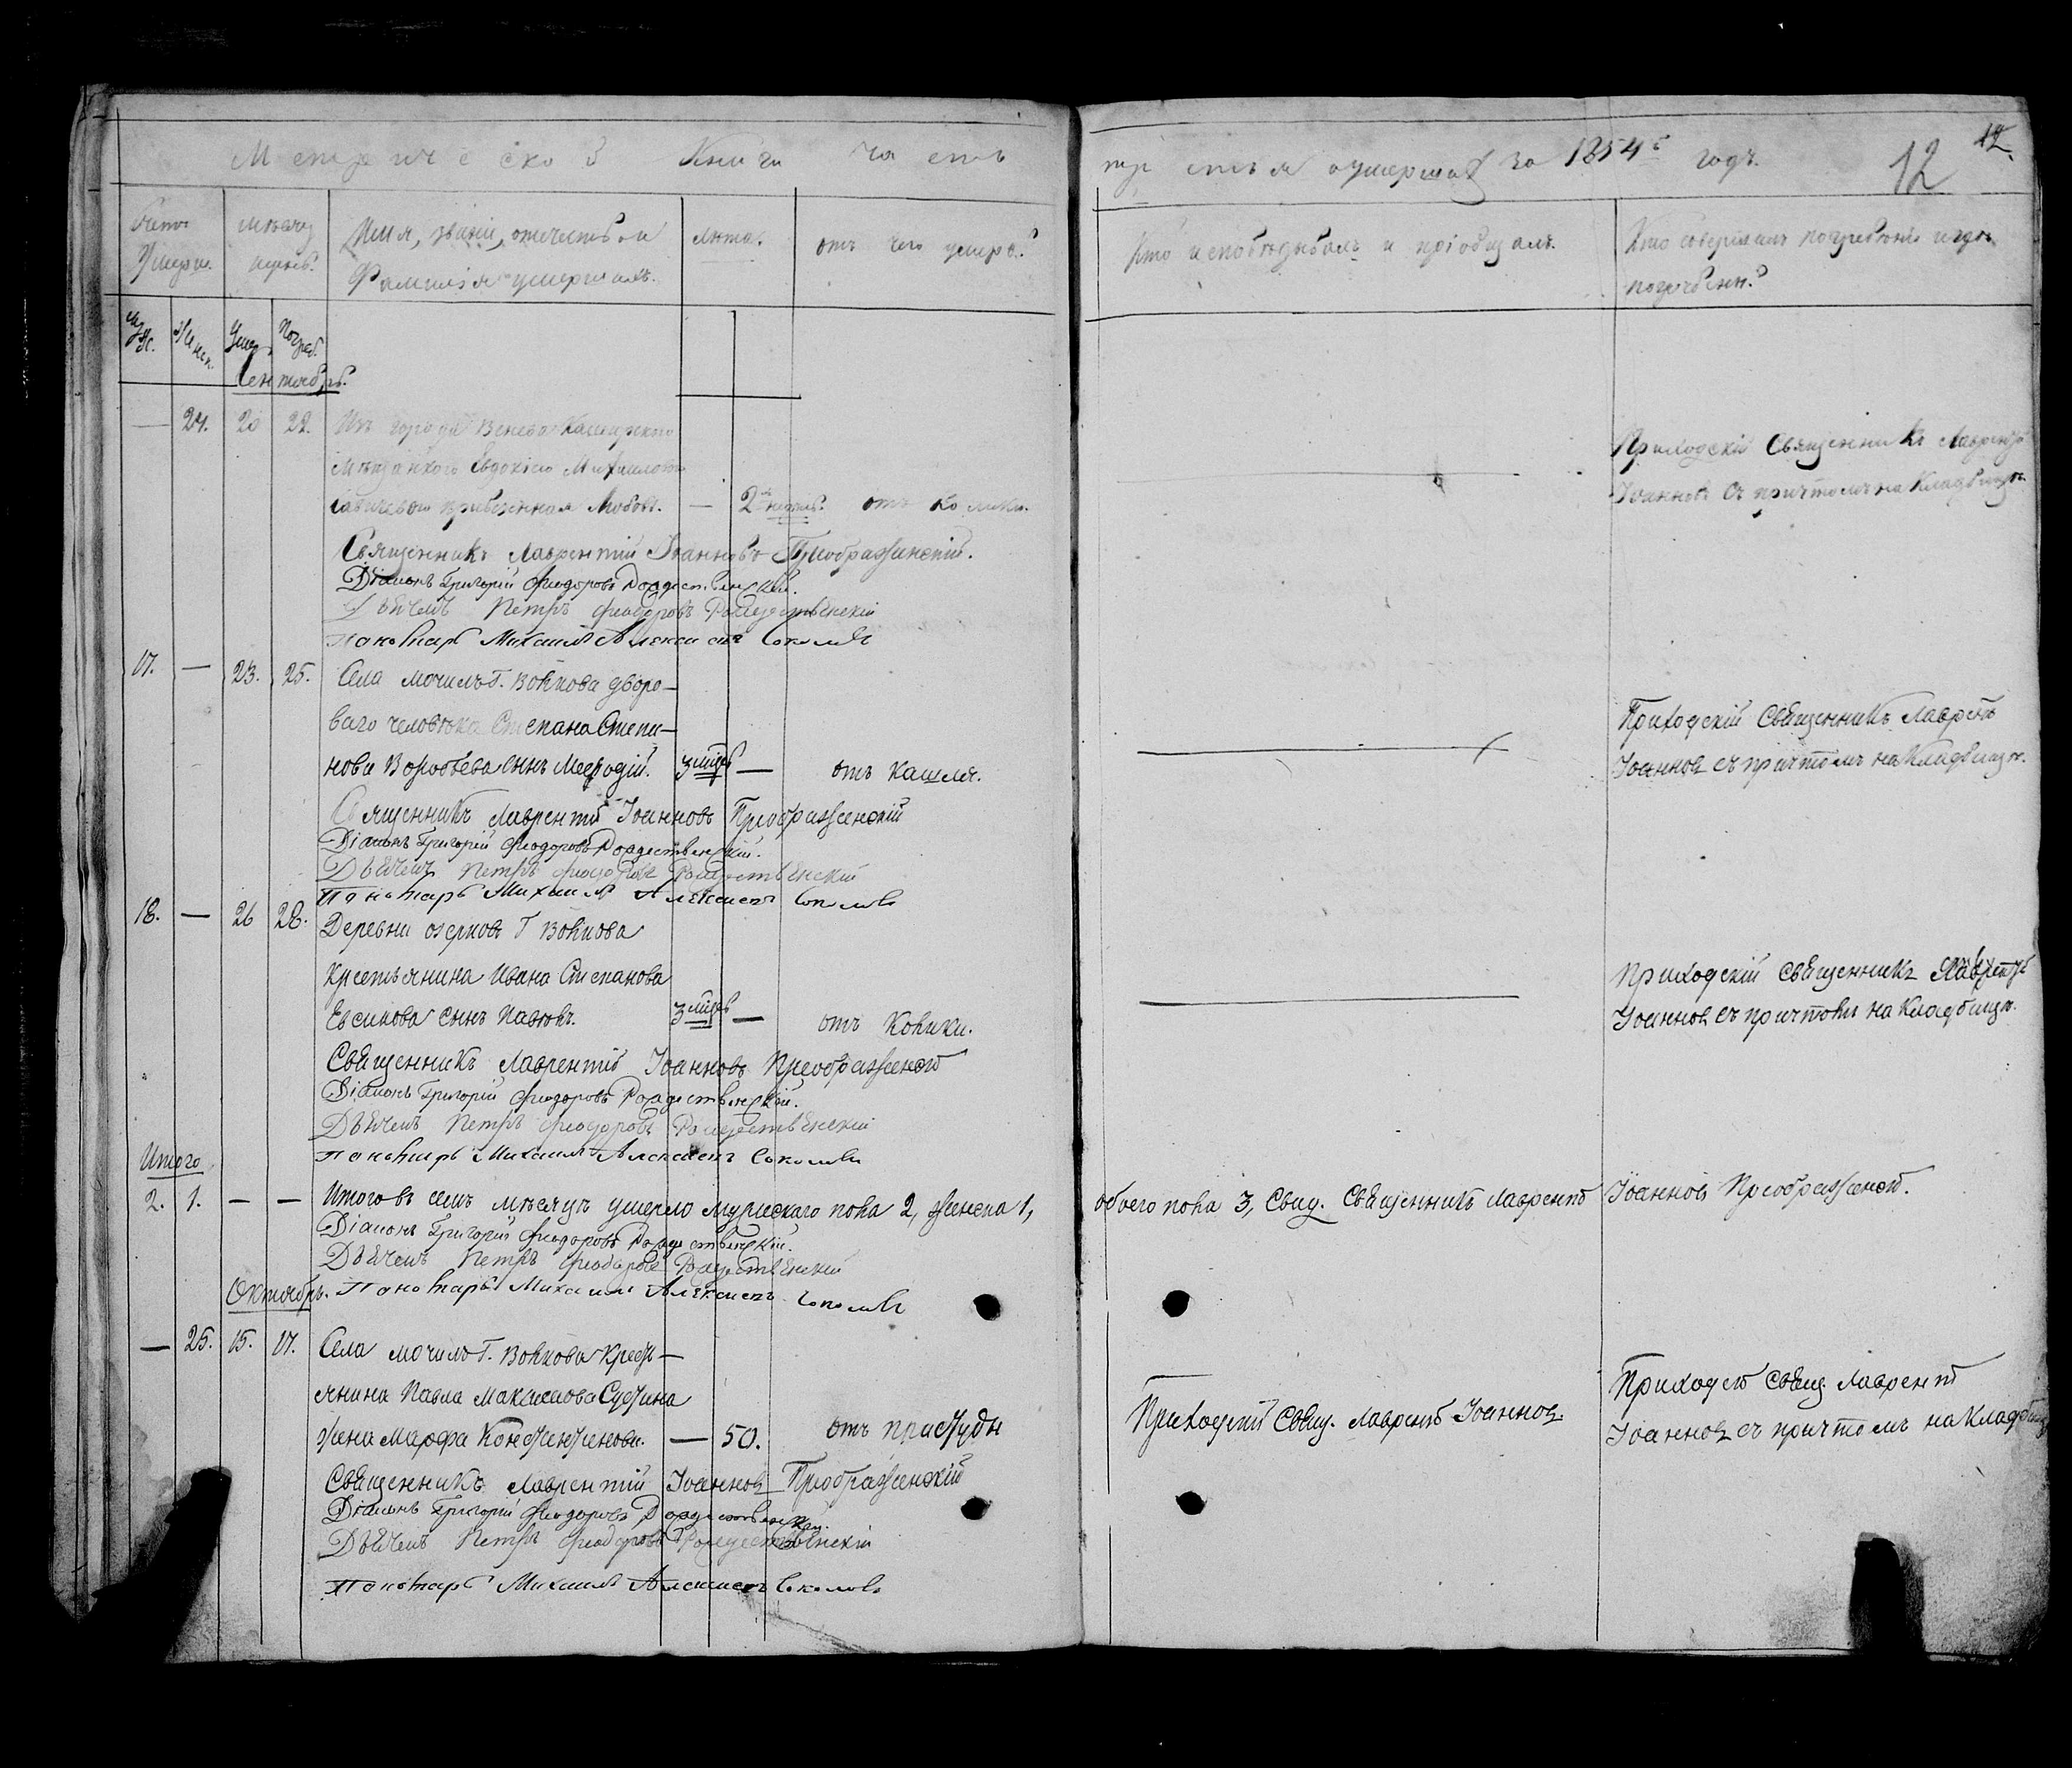 Метрической Книги часть
третья о умершихъ за 1854й годъ.
12
12.
Счетъ Умерш.
мѣсяцъ и день.
Имя, званіе, отечество и Фамилія умершихъ.
лѣта.
отъ чего умеръ.
Кто исповѣдывалъ и пріобщалъ.
Кто совершалъ погребеніе и гдѣ погребенъ.
муж.
женск.
Умер.
Погреб.
Сентябрь.
— 24. 20 22. Изъ города Венева Каширскаго
мѣщанкою Евдокіею Михаиловою
привезенная Любовь. — 2 недѣль. отъ колики.
Приходскій Священникъ Лаврентій
Іоанновъ съ причтомъ на Кладбищѣ.
Священникъ Лаврентій Іоанновъ Преображенскій.
Діаконъ Григорій Феодоровъ Рождественскій.
Дьячекъ Петръ Феодоровъ Рождественскій
Пономарь Михаилъ Алексѣевъ Соколовъ
17. — 23. 25. Села Мочилъ Г. Волкова дворо-
ваго человѣка Степана Степа-
нова Воробьева сынъ Меѳодій. 3 мѣсяц — отъ Кашля.
Приходскій Священникъ Лаврентій
Іоанновъ съ причтомъ на Кладбищѣ.
Священникъ Лаврентій Іоанновъ Преображенскій
Діаконъ Григорій Феодоровъ Рождественскій.
Дьячекъ Петръ Феодоровъ Рождественскій
Пономарь Михаилъ Алексѣевъ Соколовъ
18. — 26 28. Деревни озерковъ Г Волкова
Крестьянина Ивана Степанова
Евсикова сынъ Павелъ. 3 мѣсяц — отъ Колики.
Приходскій Священникъ Лаврентій
Іоанновъ съ причтомъ на Кладбищѣ.
Священникъ Лаврентій Іоанновъ Преображенскій
Діаконъ Григорій Феодоровъ Рождественскій.
Дьячекъ Петръ Феодоровъ Рождественскій
Пономарь Михаилъ Алексѣевъ Соколовъ
Итого
2. 1. — — Итого въ семъ мѣсяцѣ умерло мужескаго пола 2, женска 1, обоего пола 3, Свящ. Священникъ Лаврентій Іоанновъ Преображенскій.
Діаконъ Григорій Феодоровъ Рождественскій.
Дьячекъ Петръ Феодоровъ Рождественскій
Октябрь. Пономарь Михаилъ Алексѣевъ Соколовъ
— 25. 15. 17. Села Мочилъ Г. Волкова Кресть-
янина Павла Максимова
жена Марфа Константинова. — 50. отъ простуды
Приходскій Свящ. Лаврентій Іоанновъ.
Приходскій Свящ. Лаврентій
Іоанновъ съ причтомъ на Кладбищѣ
Священникъ Лаврентій Іоанновъ Преображенскій
Діаконъ Григорій Феодоровъ Рождественскій.
Дьячекъ Петръ Феодоровъ Рождественскій
Пономарь Михаилъ Алексѣевъ Соколовъ